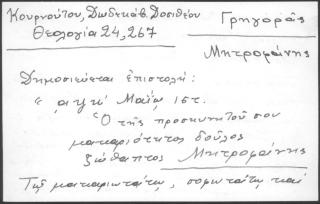 Κουρνούτου, Δωδεκάβ. Δοσιθέου
Θεολογία 24, 267
Γρηγοράς
Μητρομάνης
Δημοσιεύεται ἐπιστολή:
"αψιζ' Μαΐῳ ιστ.
Ὁ τῆς προσκυνητοῦ σου
μακαριότητος δοῦλος
Μητρομάνης
Τῷ μακαριωτάτῳ, σοφωτάτῳ καί